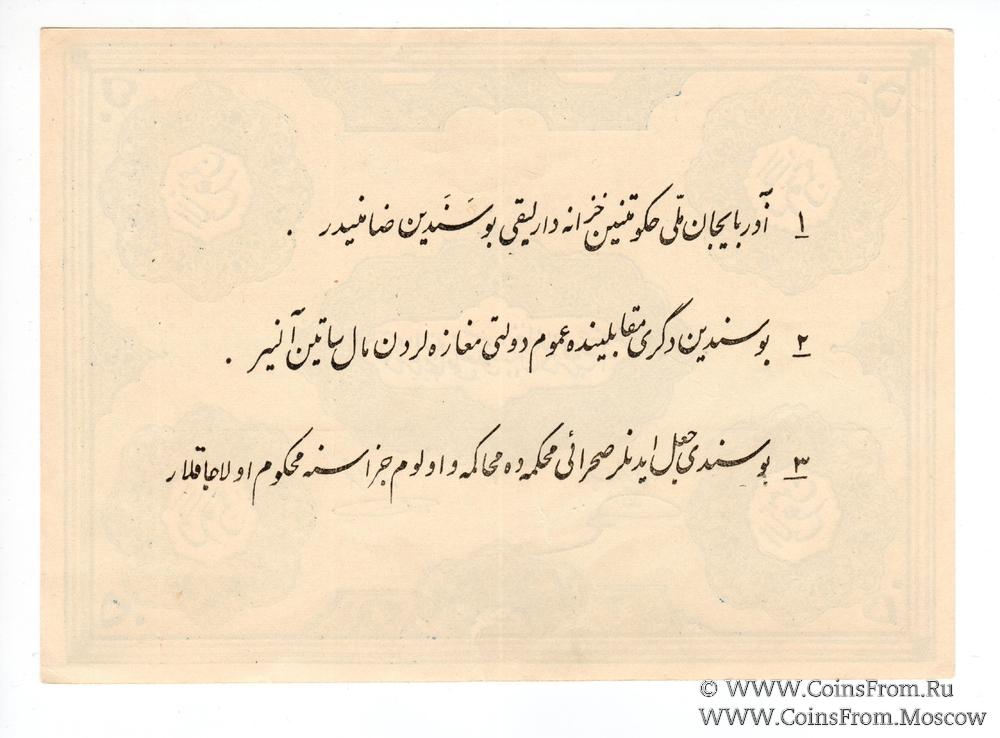 ۱ آذربایجان ملّی حکومتنین خزانه دارلیقی بو سَنَدین ضامنیدر .
۲ بو سندین دگری مقابلینده عموم دولتی مغازه لردن مال ساتین آلنیر .
۳ بو سندی جعل ایدنلر صحرائی محکمه ده محاکمه و اولوم جزاسنه محکوم اولاجاقلار
© WWW.CoinsFrom.Ru
WWW.CoinsFrom.Moscow